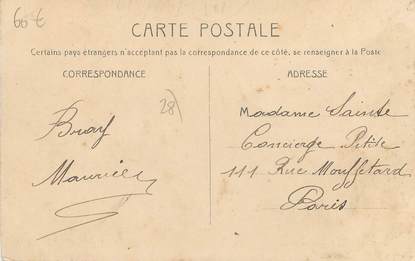 60€
CARTE POSTALE
Certains pays étrangers n'acceptant pas la correspondance de ce côté, se renseigner à la Poste
CORRESPONDANCE
ADRESSE
28)
Bray
Maurice
Madame Sainte
Concierge
111 Rue Mouffetard
Paris